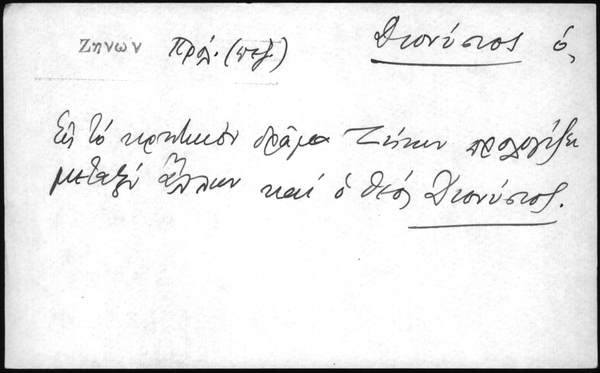 Ζηνων Πρόλ. (πεζ) Διονύσιος ὁ,
Εἰς τὸ κρητικὸν δρᾶμα Ζήνων προλογίζει
μεταξὺ ἄλλων καὶ ὁ θεός Διονύσιος.